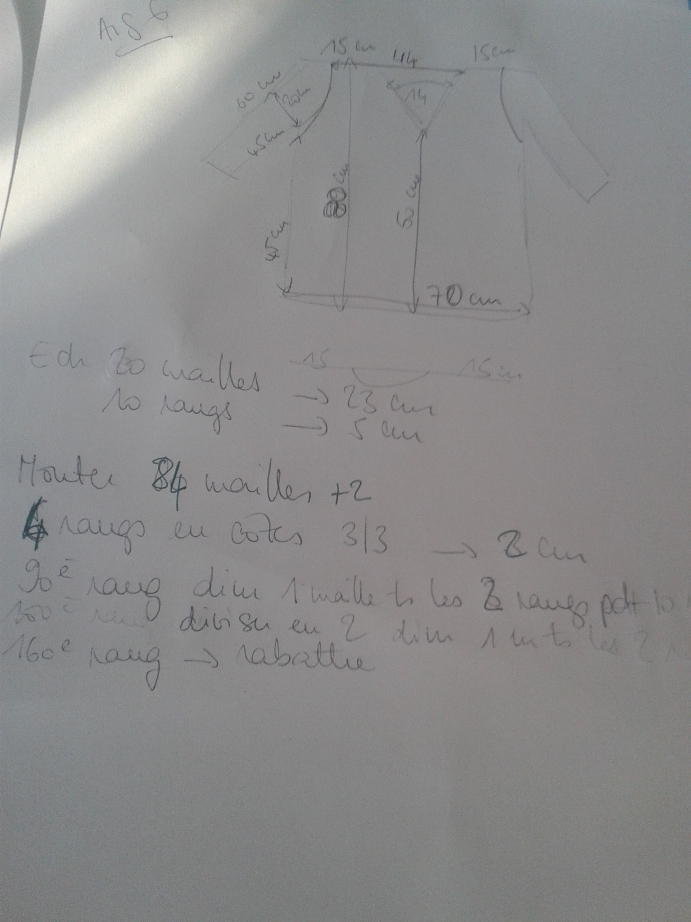 Aig 6
15 cm 44 15 cm
60 cm
20 cm
14
45 cm
80 cm
50 cm
45 cm
70 cm
Ech 20 mailles → 23 cm
15 15 cm
10 rangs → 5 cm
Monter 84 mailles +2
4 rangs en côtes 3/3 → 2 cm
90è rang dim 1 maille ts les 2 rangs pdt 10
100è rang diviser en 2 dim 1 m ts les 2
160è rang → rabattre